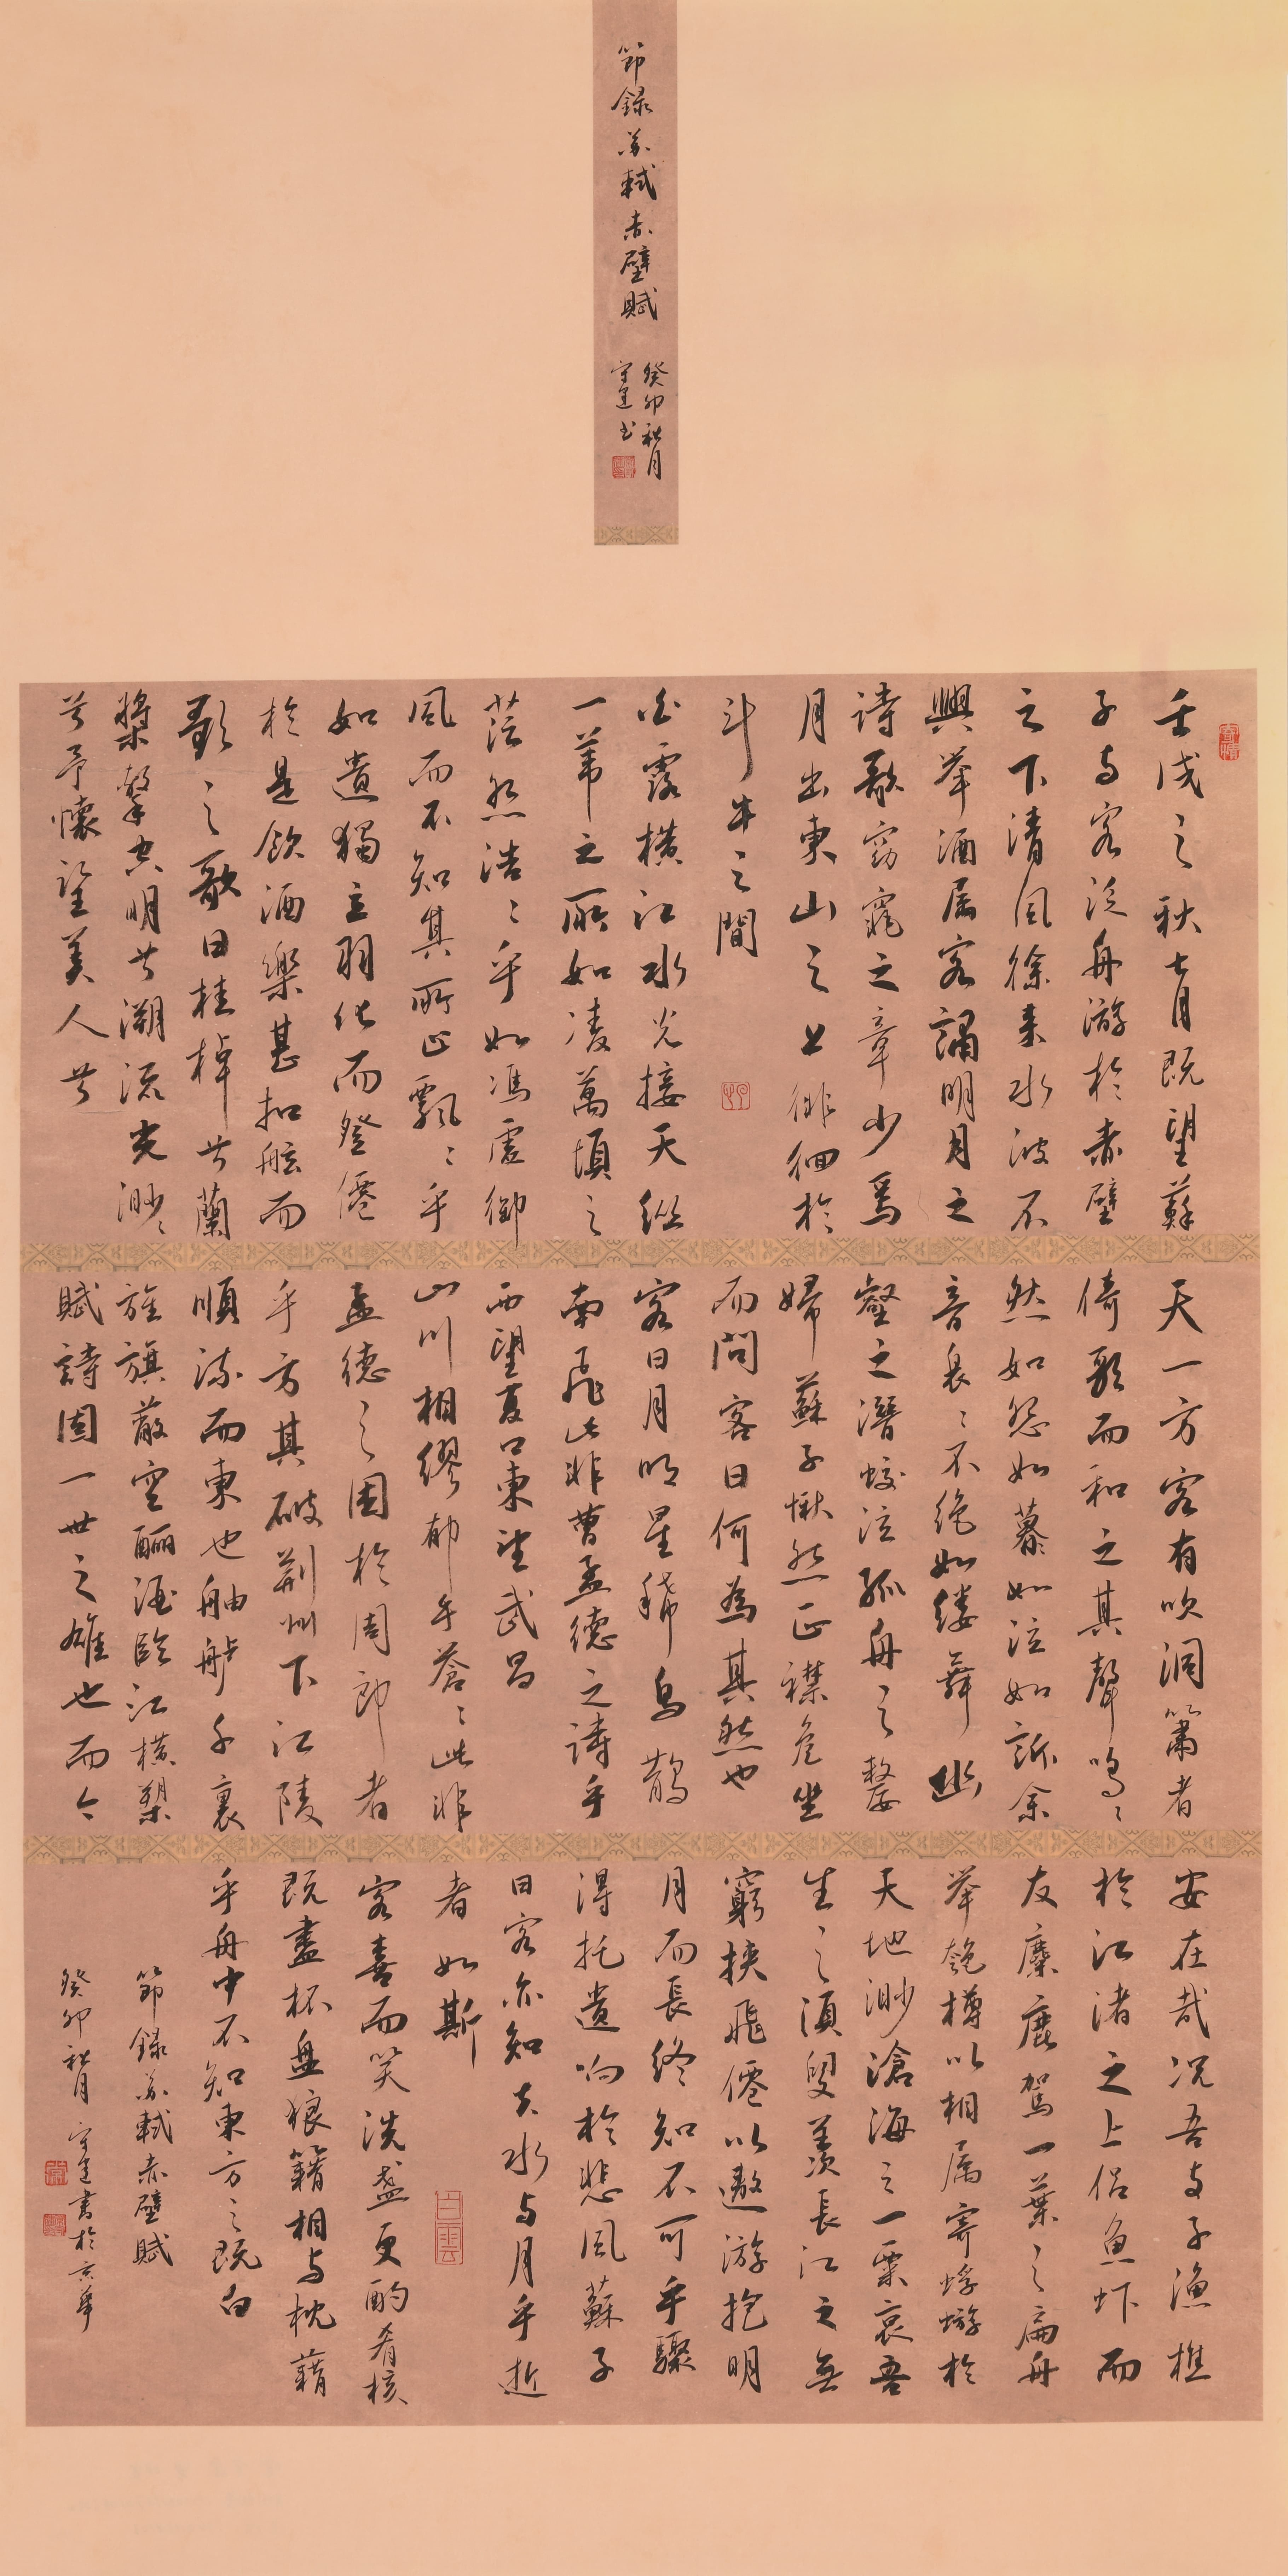 節録蘇軾赤壁賦
癸卯秋月
守建书
壬戌之秋七月既望蘇
子与客泛舟游於赤壁
之下清風徐来水波不
興舉酒属客誦明月之
詩歌窈窕之章少焉
月出東山之上徘徊於
斗牛之間
白露横江水光接天縱
一葦之所如凌萬頃之
茫然浩〻乎如馮虚御
風而不知其所止飄〻乎
如遺獨立羽化而登僊
於是飲酒樂甚扣舷而
歌之歌曰桂棹兮蘭
槳擊空明兮溯流光渺〻
兮予懷望美人兮
天一方客有吹洞簫者
倚歌而和之其聲鳴〻
然如怨如慕如泣如訴余
音裊〻不绝如缕舞幽
壑之潛蛟泣孤舟之嫠
婦蘇子愀然正襟危坐
而問客曰何為其然也
客曰月明星稀烏鵲
南飛此非曹孟德之詩乎
西望夏口東望武昌
山川相繆郁乎蒼〻此非
孟德之困於周郎者
乎方其破荆州下江陵
順流而東也舳舻千裏
旌旗蔽空酾酒臨江横槊
賦詩固一世之雄也而今
安在哉况吾与子漁樵
於江渚之上侣魚虾而
友麋鹿駕一葉之扁舟
舉匏樽以相属寄蜉蝣於
天地渺滄海之一粟哀吾
生之須臾羡長江之無
窮挾飛僊以遨游抱明
月而長终知不可乎驟
得托遗响於悲風蘇子
曰客亦知夫水与月乎逝
者如斯
客喜而笑洗盏更酌肴核
既盡杯盤狼籍相与枕藉
乎舟中不知東方之既白
節録蘇軾赤壁賦
癸卯秋月守建書於京華
白雲